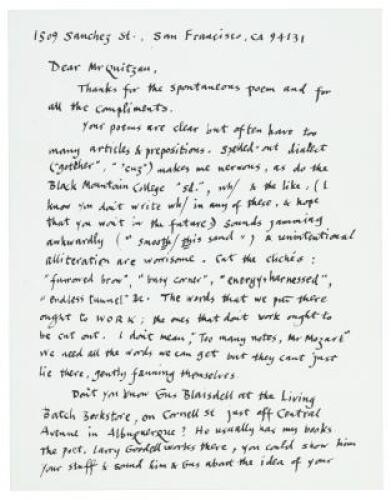 1509 Sanchez St., San Francisco, CA 94131
Dear Mr Quitzau,
Thanks for the spontaneous poem and for
all the compliments.
Your poems are clear but often have too
many articles & prepositions. Spelled-out dialect
("gotcher", "'cuz") makes me nervous, as do the
Black Mountain College "sd.", wh/ & the like. (I
know you don't write wh/ in any of these, & hope
that you won't in the future.) Sounds jamming
awkwardly ("smooth/this sand") & unintentional
alliteration are worrisome. Cut the clichés:
"furrowed brow", "busy corner", "energy-harnessed",
"endless tunnel" &c. The words that we put there
ought to WORK; the ones that don't work ought to
be cut out. I don't mean, "Too many notes, Mr Mozart"
We need all the words we can get but they cant just
lie there, gently fanning themselves.
Don't you know Gus Blaisdell at the Living
Batch Bookstore, on Cornell St just off Central
Avenue in Albuquerque? He usually has my books
The poet, Larry Goodell works there, you could show him
your stuff & sound him & Gus about the idea of your